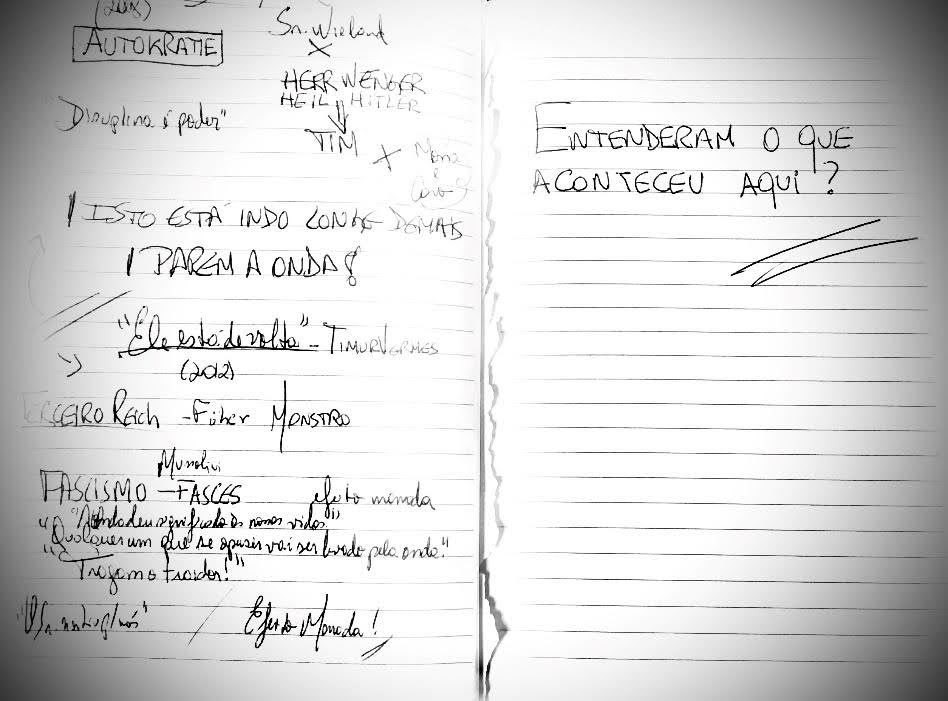 (2008)
AUTOKRATIE
Sr. Wieland
X
HERR WENGER
HEIL HITLER
"Disciplina é poder"
TIM X Mona
e
Caro?
! ISTO ESTÁ INDO LONGE DEMAIS
! PAREM A ONDA!
"Ele está de volta" - TIMUR VERMES
(2012)
TERCEIRO REICH - Füher MONSTRO
Mussolini
FASCISMO - FASCES efeito manada
"A onda deu significado às nossas vidas."
"Qualquer um que se opuser vai ser levado pela onda."
"Tragam o traidor!"
Efeito Manada!
ENTENDERAM O QUE
ACONTECEU AQUI?